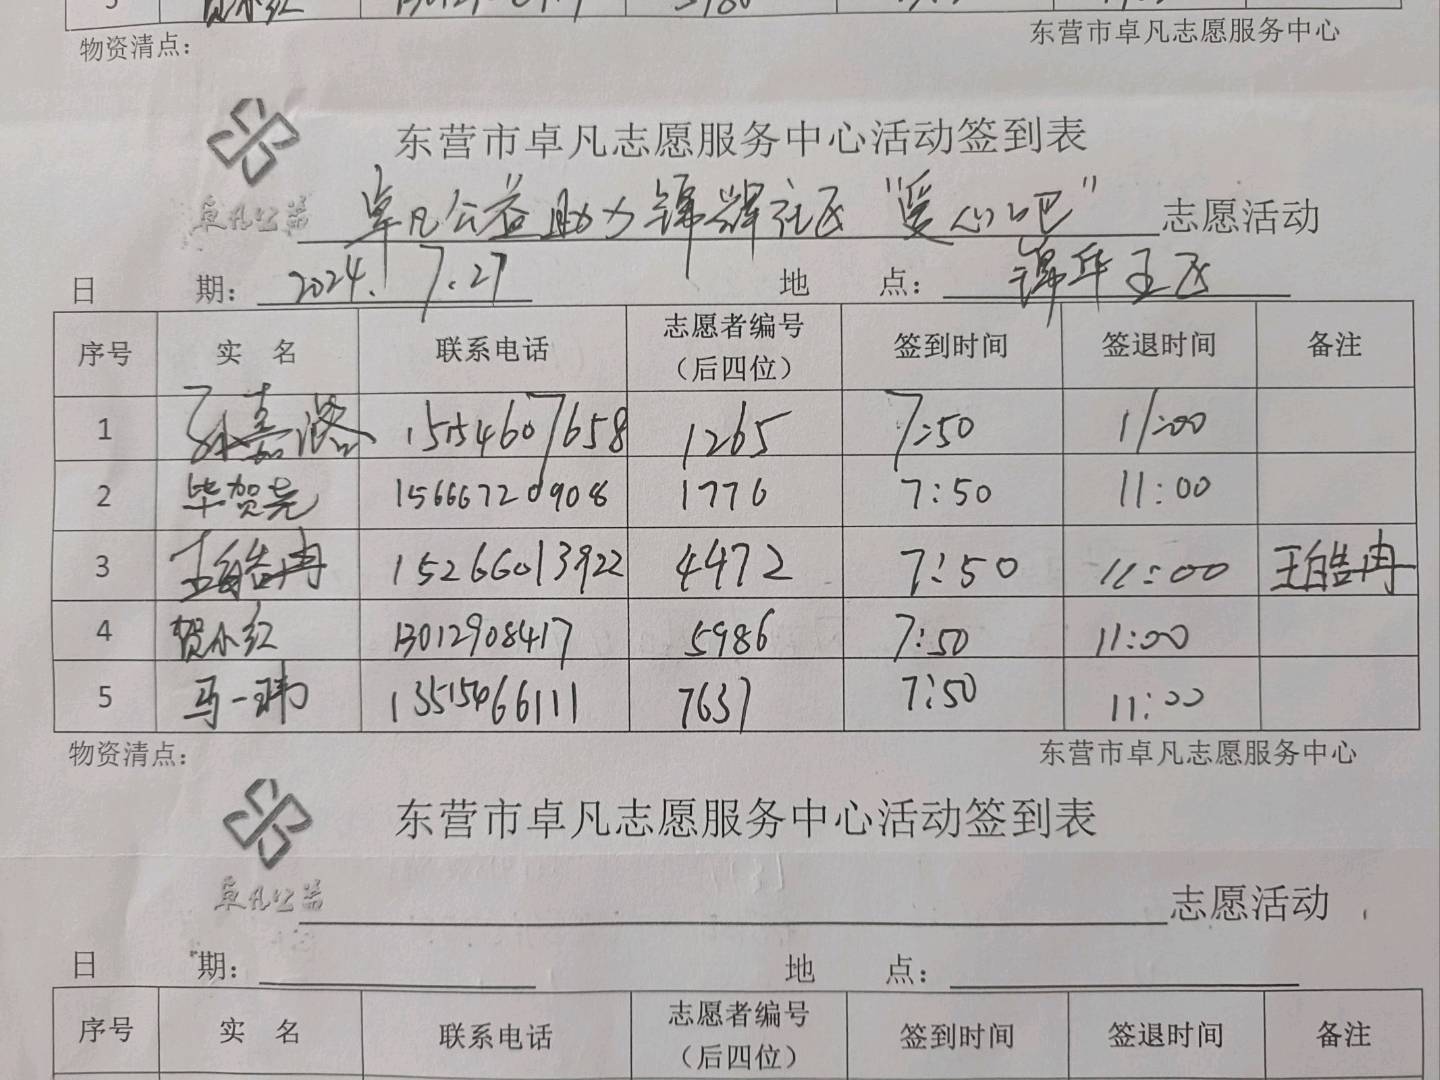 物资清点： 东营市卓凡志愿服务中心
东营市卓凡志愿服务中心活动签到表
卓凡公益
卓凡公益助力锦辉社区“爱心吧” 志愿活动
日 期： 2024.7.27 地 点： 锦华五区
序号 实 名 联系电话 志愿者编号（后四位） 签到时间 签退时间 备注
1 孙嘉潞 15154607658 1265 7:50 11:00
2 毕贺尧 15666720908 1776 7:50 11:00
3 王皓冉 15266013922 4472 7:50 11:00 王皓冉
4 贺小红 13012908417 5986 7:50 11:00
5 马一玮 13515466111 7637 7:50 11:00
物资清点： 东营市卓凡志愿服务中心
东营市卓凡志愿服务中心活动签到表
卓凡公益
志愿活动
日 期： 地 点：
序号 实 名 联系电话 志愿者编号（后四位） 签到时间 签退时间 备注